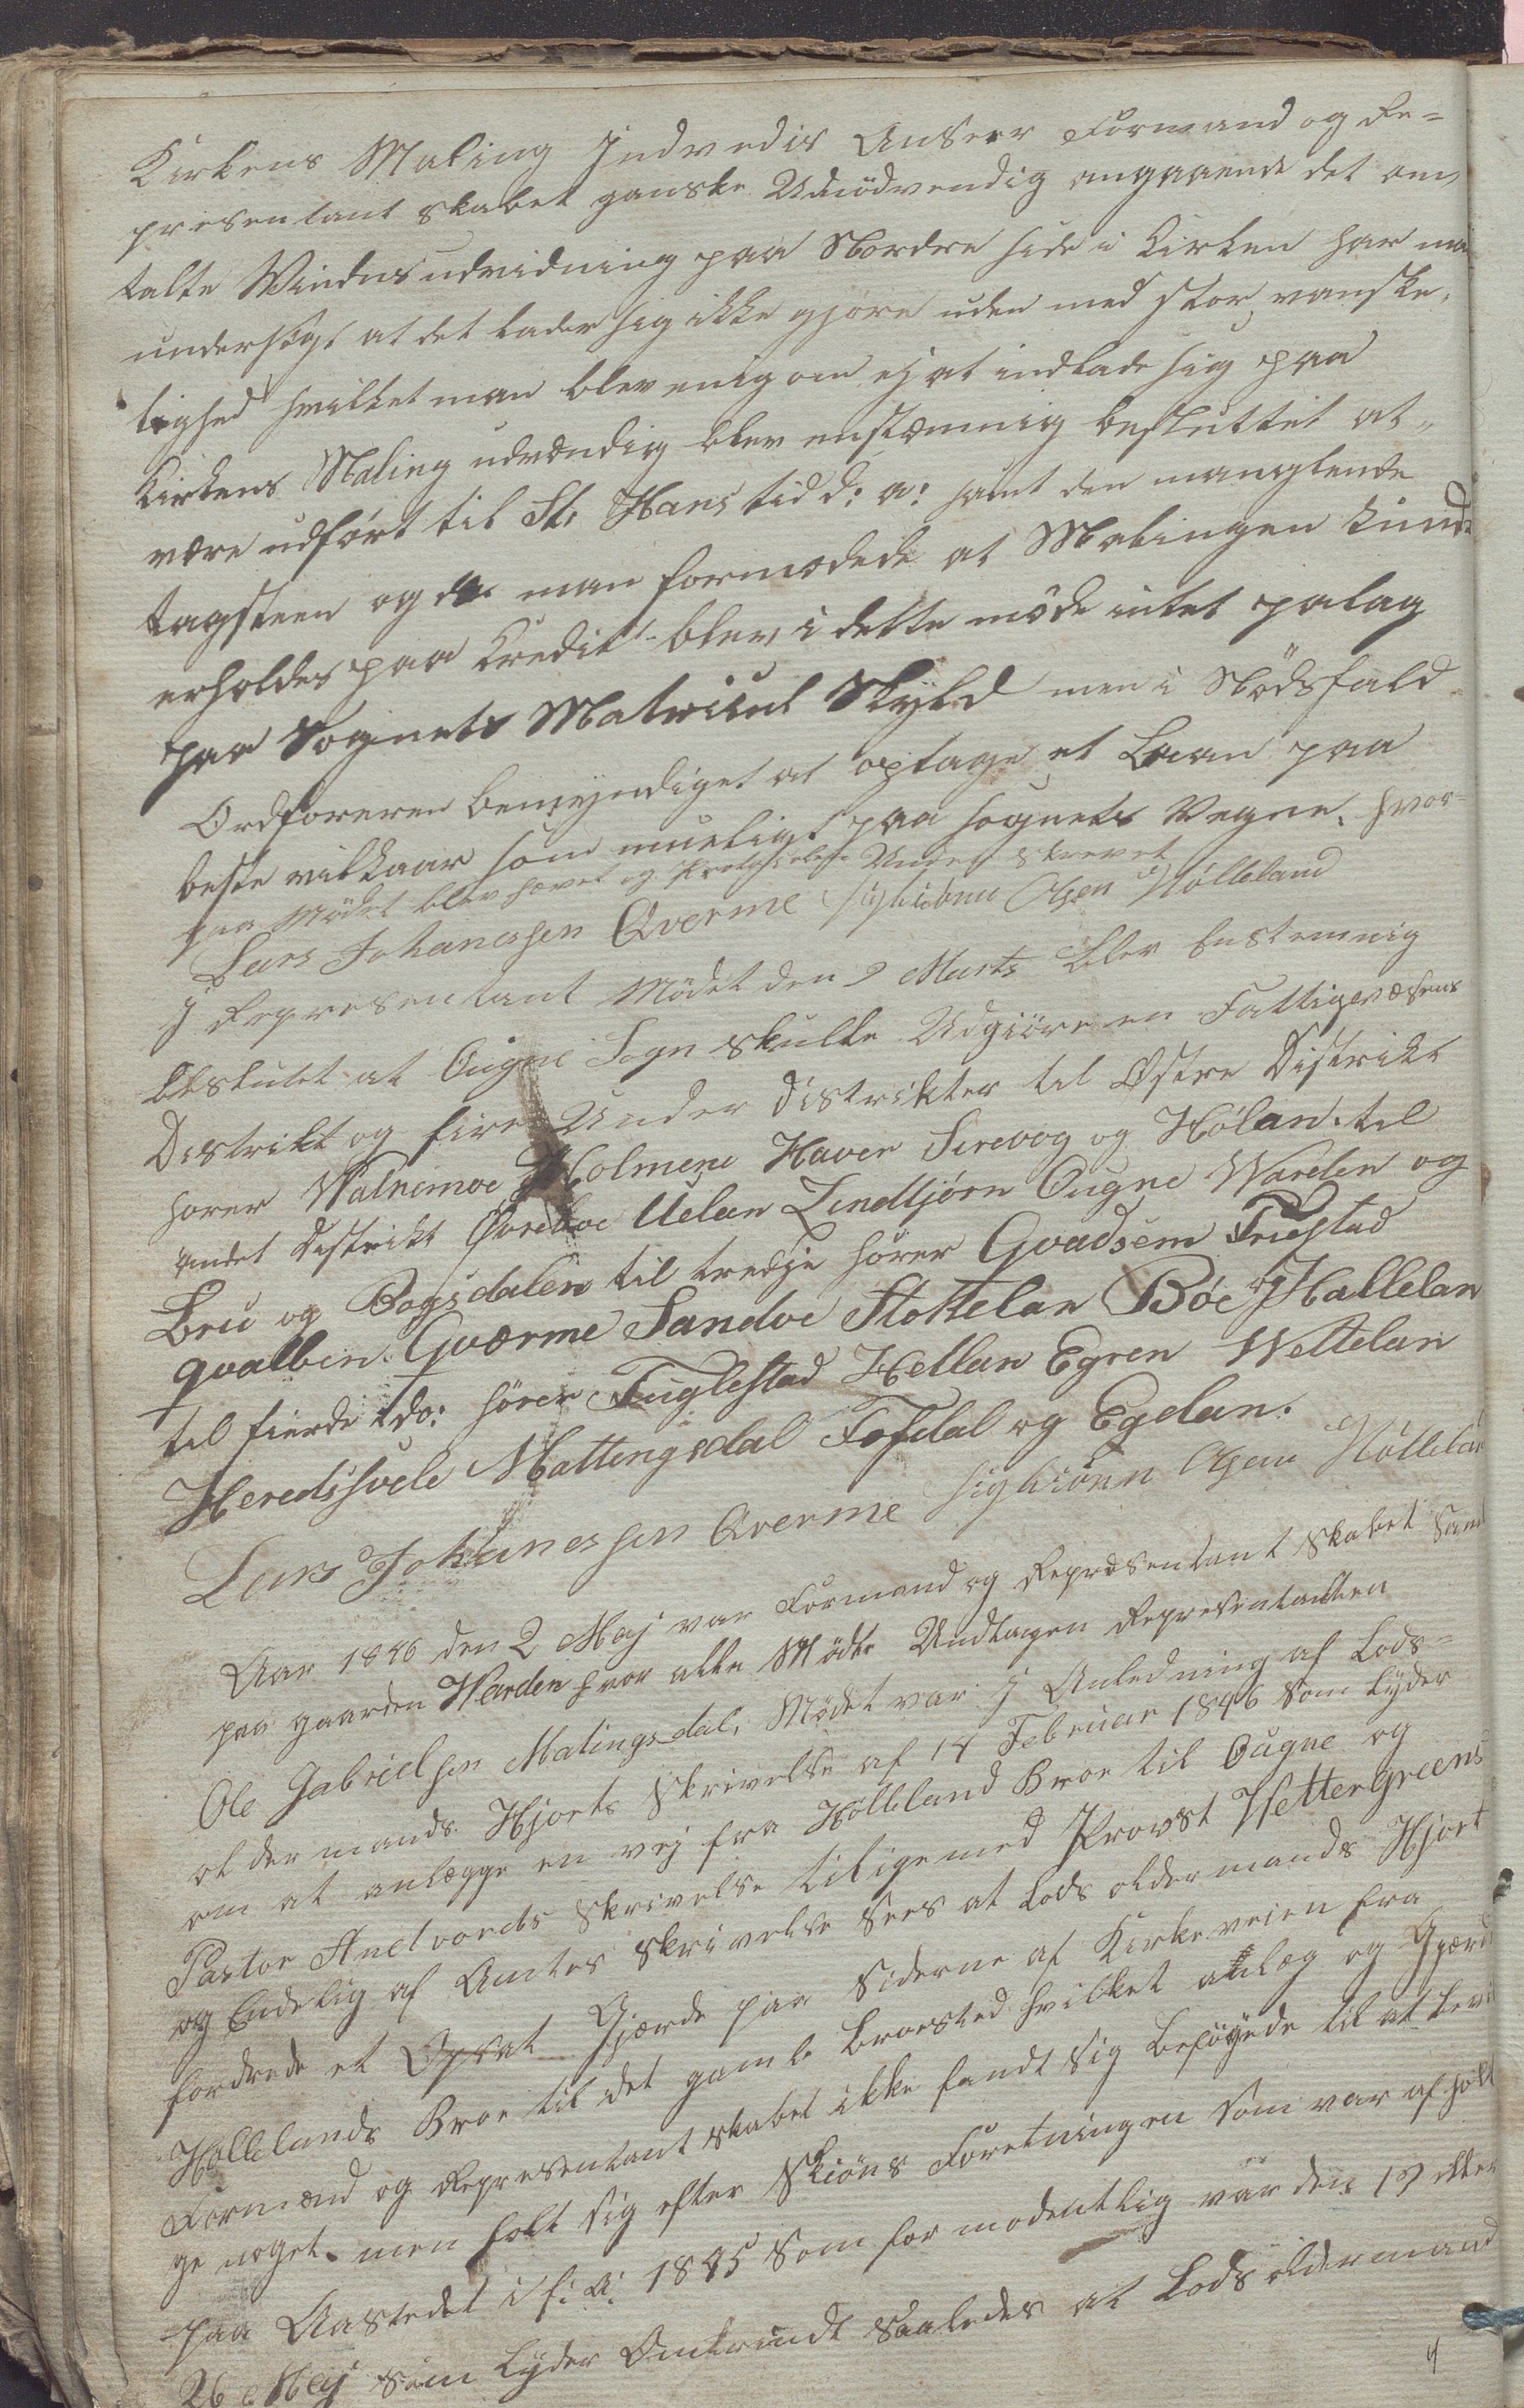 Kirkens Maling Indvedis Anseer Formand og Re=
presentantskabet ganske Unödvendig angaaende det om
talte Vindusudvidning paa Nordre side i Kirken har man
undersögt at det lader sig ikke gjöre uden med stor vanske,
lighed hvilket man blev enig om ej at indlade sig paa
Kirkens Maling udvendig blev enstemmig besluttet at
være udfört til St. Hans tid d: a: samt den manglende
tagsteen og da man formodede at Malingen kunde
erholdes paa Kredit blev i dette möde intet palag
paa Sognets Matricul Skyld men i Nödsfald
Ordforeren bemyndiget at optage et Laan paa
beste vilkaar som mueligt paa Sognets Vegne, hvor=
paa Mödet blev hævet og Protokolen Underskrevet
Lars Johanessen Qverme Sigbiönn Olsen Hölleland
I Representant Mödet den 9 Marts blev Enstemmig
Beslutet at Ougne Sogn skulle Udgiöre en Fattigvæsens
Distrikt og fire Under Distrikter til Östre Distrikt
hører Walnemoe Holmene Haver Sirevog og Hölan. til
andet Distrikt Övreboe Uelan Lindtjörn Ougne Warden og
Bru og Bogsdalen til tredje hører Qvadsem Friestad
qvalben. Qværme Sandve Stokkelan Böe og Hallelan
til fierde do: hörer Fuglestad Hellan Egren Wettelan
Heredshvele Mattengsdal Tofsdal og Egelan.
Lars Johanessen Qverme Sigbiönn Olsen Hölleland
Aar 1846 den 2 Maj var Formand og Repræsentantskabet Samt
paa gaarden Warden hvor alle Mödte Undtagen Representanten
Ole Gabrielsen Matingsdal, Mödet var I Anledning af Lods=
oldermands Hjorts Skrivelse af 14 Februar 1846 som lyder
om at anlægge en vej fra Hölleland Broe til Ougne og
Pastor Andvords Skrivelse tiligemed Provst Wettergreens
og Endelig af Amtes Skrivelse Sees at Lodsoldermands Hjort
fordrede et Opsat Gjærde paa Siderne af Kirkeveien fra
Höllelands Broe til det gamle Broested hvilket anlæg og Gjærde
Formænd og Representantskabet ikke fandt sig beföyede til at bevil
ge noget. men holt sig efter Skiöns Foretningen som var af holt
paa Aastedet i f: A: 1845 som formodentlig var den 19 eller
26 Mey som lyder Omtrendt saaledes at Lodsoldermand